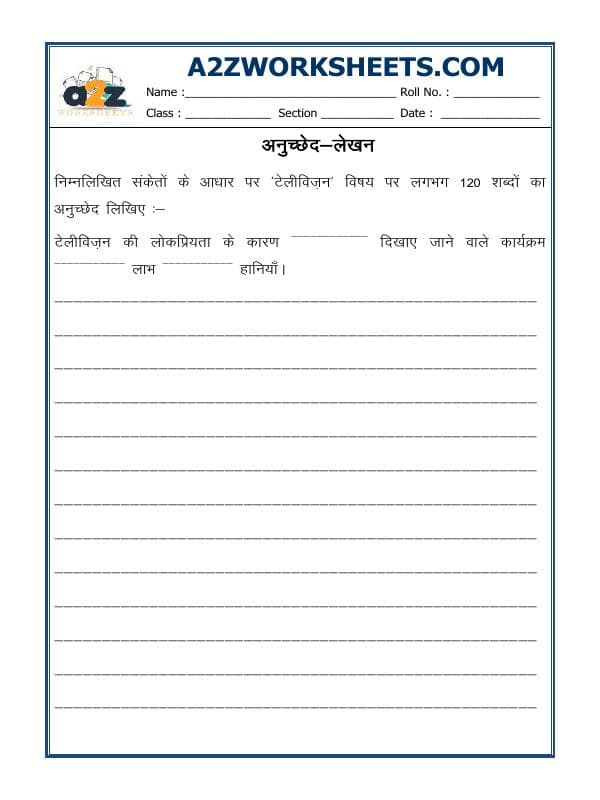 A2ZWORKSHEETS.COM
a2z
WORKSHEETS
Name :________________________________ Roll No. : _____________
Class : _____________ Section ___________ Date : _______________
अनुच्छेद–लेखन
निम्नलिखित संकेतों के आधार पर 'टेलीविज़न' विषय पर लगभग 120 शब्दों का
अनुच्छेद लिखिए :–
टेलीविज़न की लोकप्रियता के कारण ____________ दिखाए जाने वाले कार्यक्रम
___________ लाभ ___________ हानियाँ।